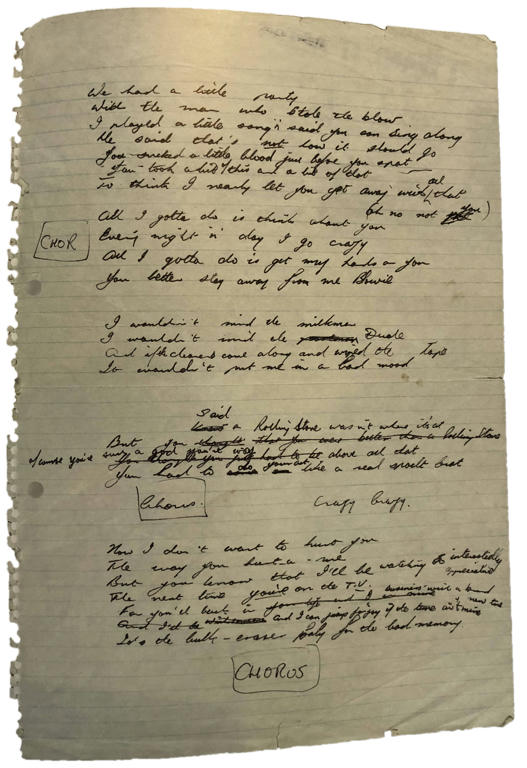 We had a little party
With the man who stole the blow
I played a little song n' said you can sing along
He said that's not how it should go
You sucked a little blood just before you spat
You took a bit this and a bit of that
so think I nearly let you get away with all that
(oh no not you)
All I gotta do is think about you
CHOR
Every night 'n' day I go crazy
All I gotta do is get my hands on you
You better stay away from me Bowie
I wouldn't mind the milkman
I wouldn't mind the Dude
And if the cleaners come along and wiped the Tape
It wouldn't put me in a bad mood
Said
But you a Rolling Stone wasn't where it's at
that you was better than a Rolling Stone
of course you're above all that
You had to like a real spoilt brat
Chorus.
Crazy Crazy.
Now I don't want to hurt you
The way you hurt a-me
But you know that I'll be watching interestedly
The next time you're on the T.V. with a band
For you'll and I can
It's the bulk-eraser baby for the bad memory
CHORUS